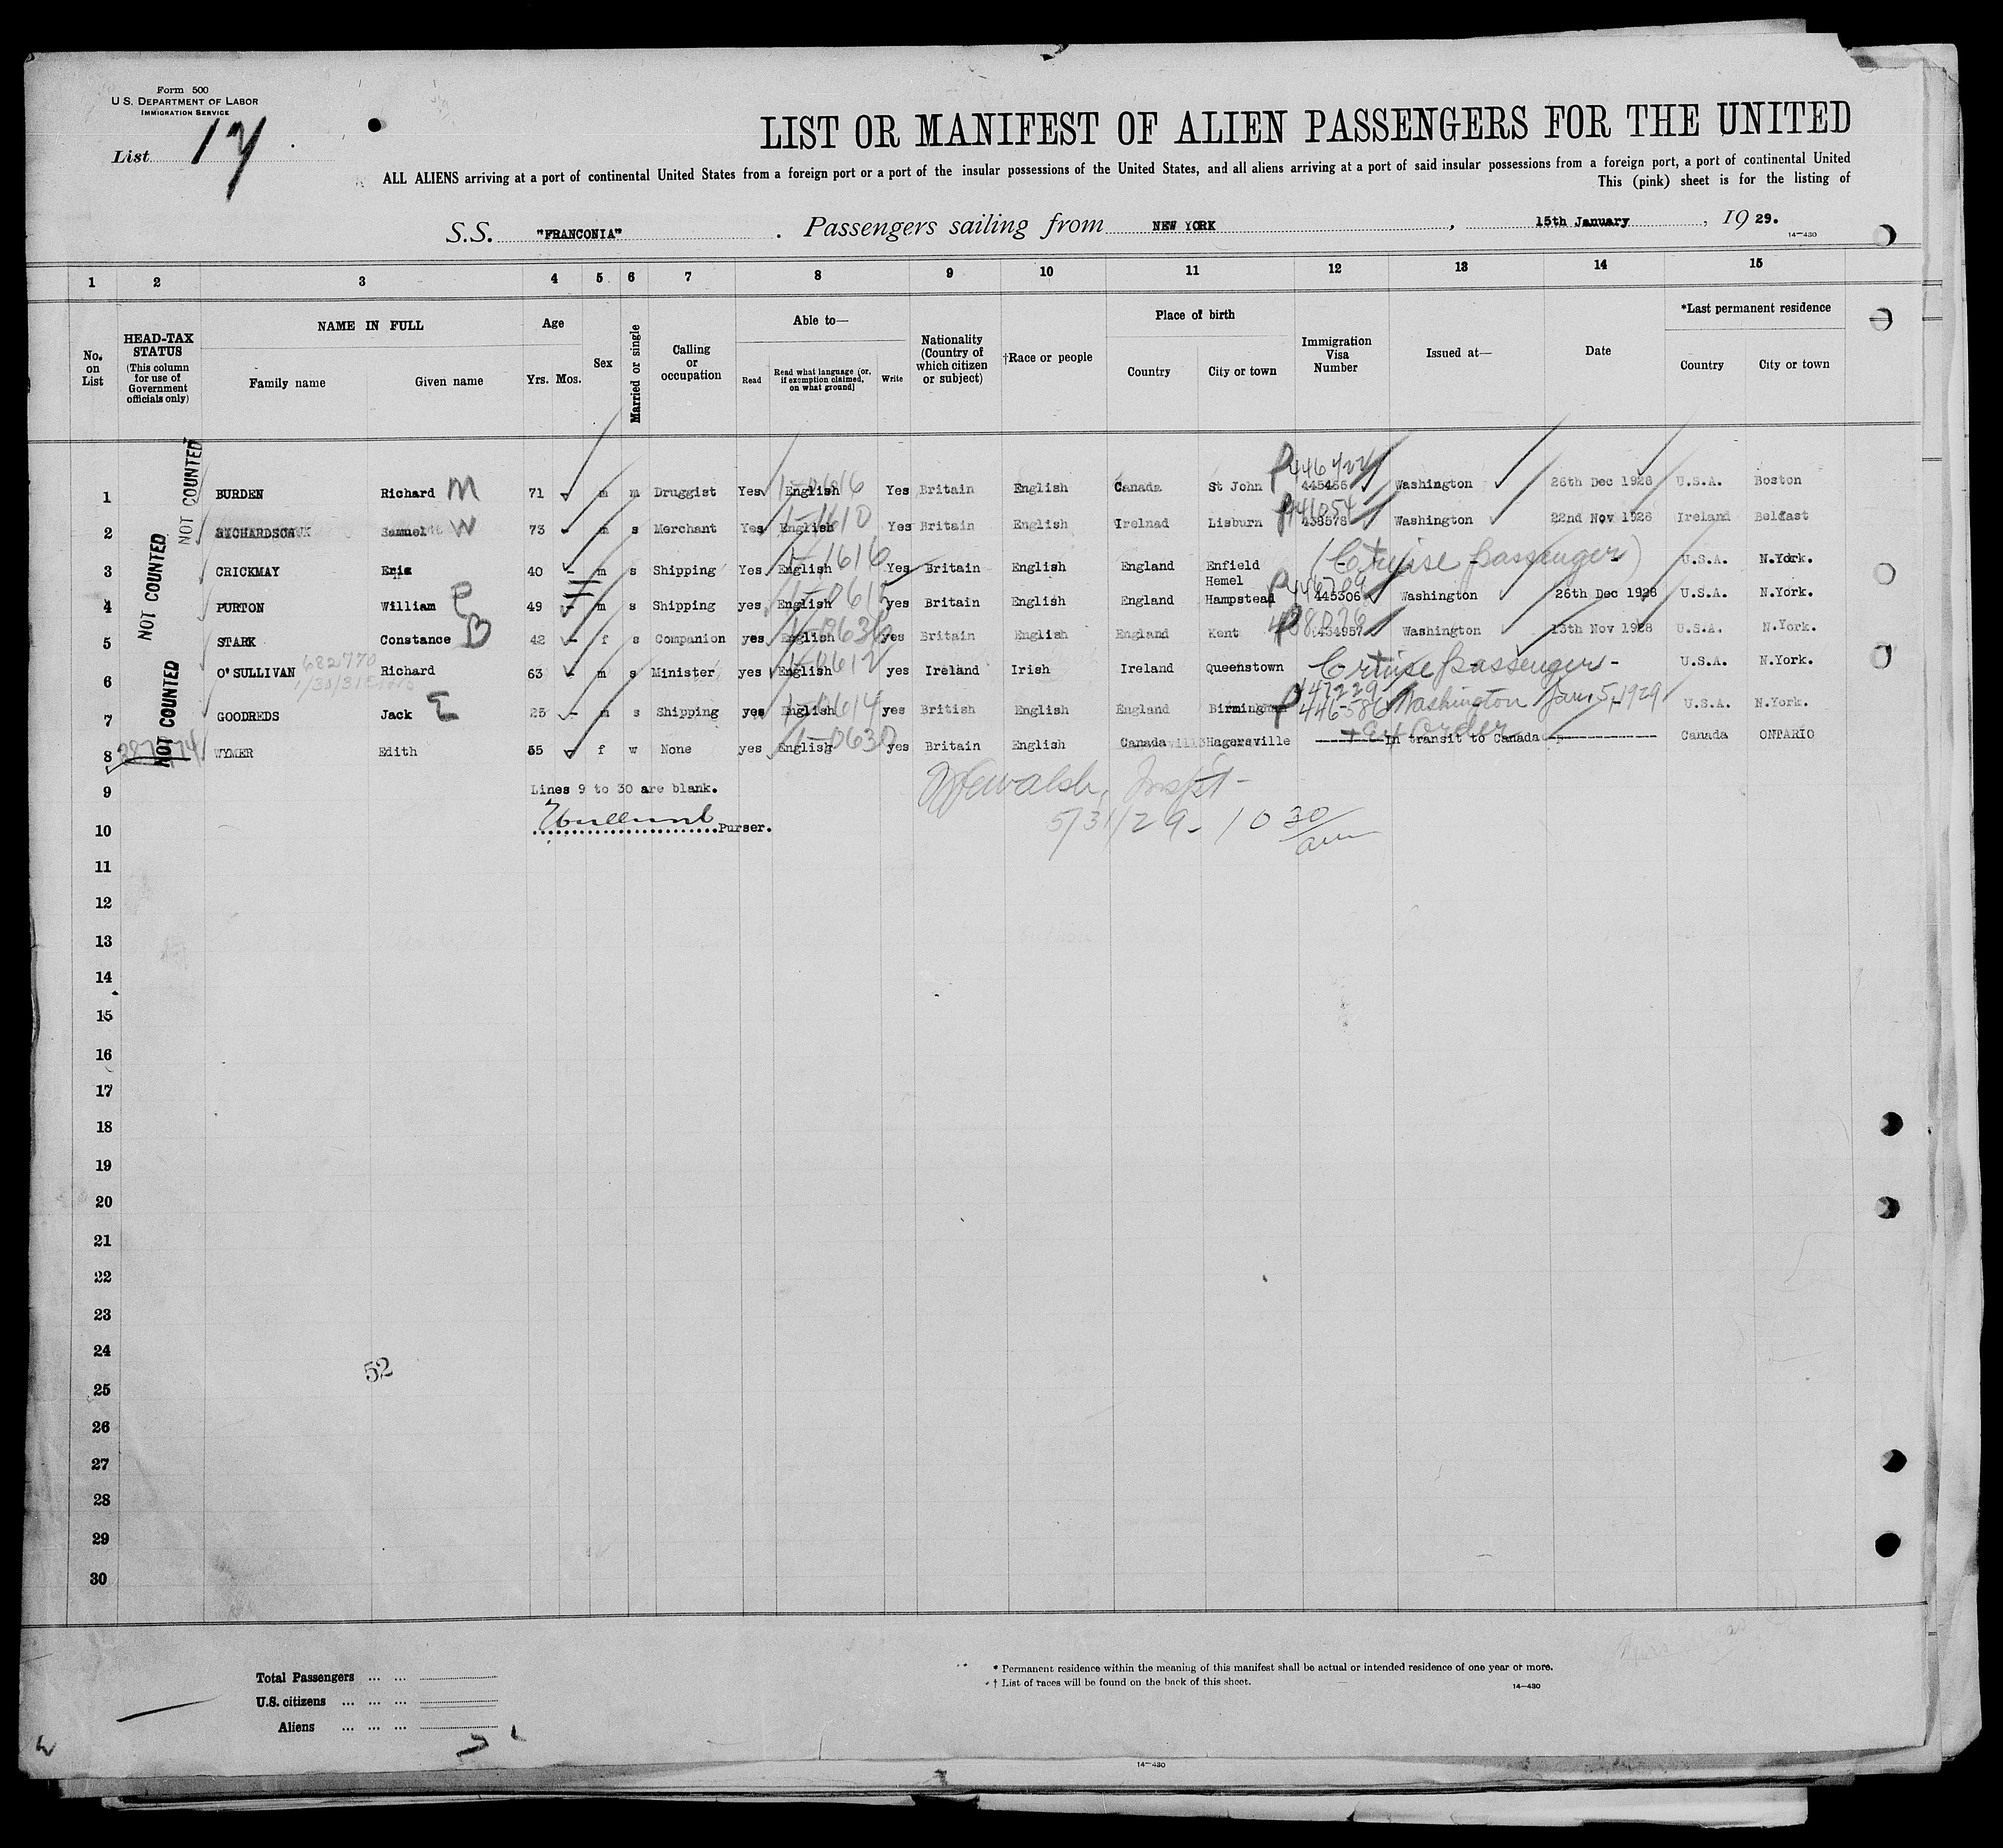 Form 500
U.S. DEPARTMENT OF LABOR
IMMIGRATION SERVICE
List 17
LIST OR MANIFEST OF ALIEN PASSENGERS FOR THE UNITED
ALL ALIENS arriving at a port of continental United States from a foreign port or a port of the insular possessions of the United States, and all aliens arriving at a port of said insular possessions from a foreign port, a port of continental United
This (pink) sheet is for the listing of
S.S. "FRANCONIA" . Passengers sailing from NEW YORK , 15th January , 19 29.
14-430
1 2 3 4 5 6 7 8 9 10 11 12 13 14 15
No. on List
HEAD-TAX STATUS (This column for use of Government officials only)
NAME IN FULL
Family name Given name
Age
Yrs. Mos.
Sex
Married or single
Calling or occupation
Able to—
Read
Read what language [or, if exemption claimed, on what ground]
Write
Nationality (Country of which citizen or subject)
†Race or people
Place of birth
Country City or town
Immigration Visa Number
Issued at—
Date
*Last permanent residence
Country City or town
NOT COUNTED
NOT COUNTED
NOT COUNTED
1 BURDEN Richard M 71 m m Druggist Yes English Yes Britain English Canada St John 445466 Washington 26th Dec 1928 U.S.A. Boston
2 RICHARDSON Samuel W 73 m s Merchant Yes English Yes Britain English Irelnad Lisburn 438578 Washington 22nd Nov 1928 Ireland Belfast
3 CRICKMAY Eric 40 m s Shipping Yes English Yes Britain English England Enfield (Cruise passenger) U.S.A. N.York.
4 PURTON William P 49 m s Shipping yes English yes Britain English England Hemel Hampstead P 446709 445306 Washington 26th Dec 1928 U.S.A. N.York.
5 STARK Constance B 42 f s Companion yes English yes Britain English England Kent 434957 Washington 13th Nov 1928 U.S.A. N.York.
6 O'SULLIVAN 682770 Richard 63 m s Minister yes English yes Ireland Irish Ireland Queenstown Cruise passenger- U.S.A. N.York.
7 GOODREDS Jack E 25 m s Shipping yes English yes British English England Birmingham P 447229 446586 Washington Jan. 5, 1929 U.S.A. N.York.
8 WYMER Edith 55 f w None yes English yes Britain English Canada Hagersville In transit to Canada Canada ONTARIO
9 Lines 9 to 30 are blank.
10 Purser.
5/31/29 - 10 30/am
11
12
13
14
15
16
17
18
19
20
21
22
23
24
52
25
26
27
28
29
30
Total Passengers ... ...
U.S. citizens ... ... ...
Aliens ... ... ...
* Permanent residence within the meaning of this manifest shall be actual or intended residence of one year or more.
† List of races will be found on the back of this sheet.
14-430
14-430